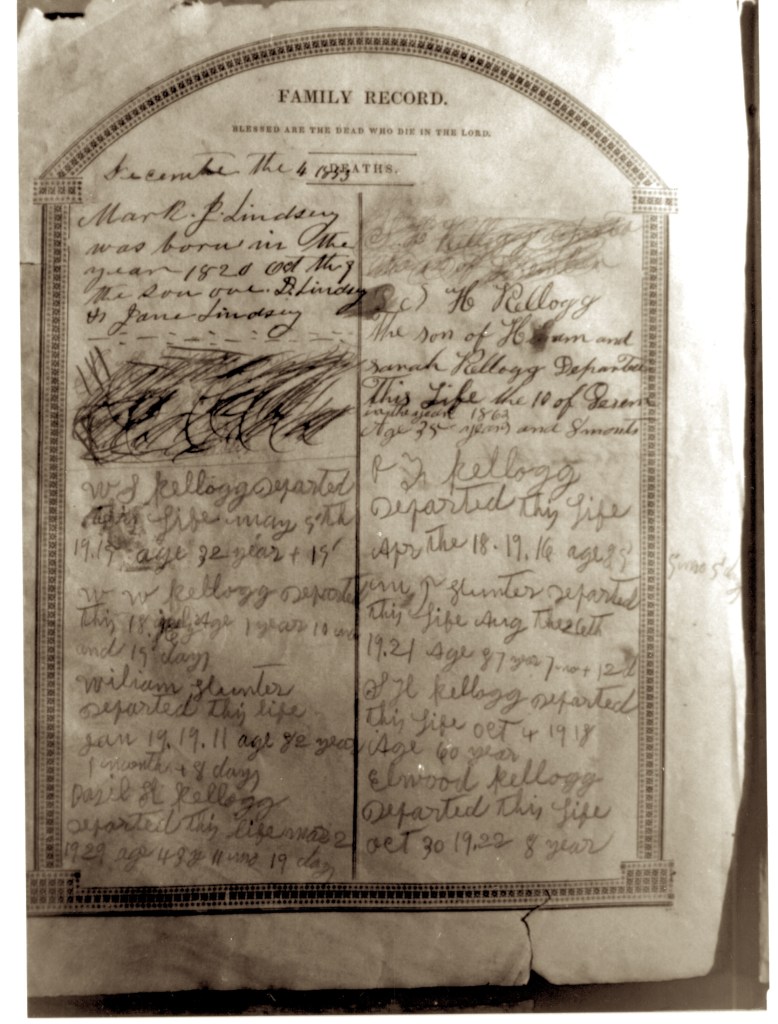 FAMILY RECORD.
BLESSED ARE THE DEAD WHO DIE IN THE LORD.
December the 4
DEATHS.
Mark. P. Lindsey
was born in the
year 1820 Oct the 9
the son ove. D. Lindsey
& Jane Lindsey
W S Kellogg departed
this Life may
age 32 year + 19
W W Kellogg departed
this 18 Age 1 year 10 mo
and 19 days
William Hunter
departed this life
Jan 19.19.11 age 82 year
1 month + 8 days
H Kellogg
departed this life mar 2
1929 age 48 y 11 mo 19 day
S H Kellogg departed
H Kellogg
The son of Hiram and
Sarah Kellogg Departed
This Life the 10 of Decem
in the year 1863
Age 35 years and 8 months
Kellogg
departed this Life
Apr the 18.19.16 age 85
5 mo 5 dy
Hunter departed
this Life Aug The 26th
19.21 Age 87 year 7 mo + 12 d
S H Kellogg departed
this Life Oct 4 1918
Age 60 year
Elwood Kellogg
departed this Life
Oct 30 19.22 8 year